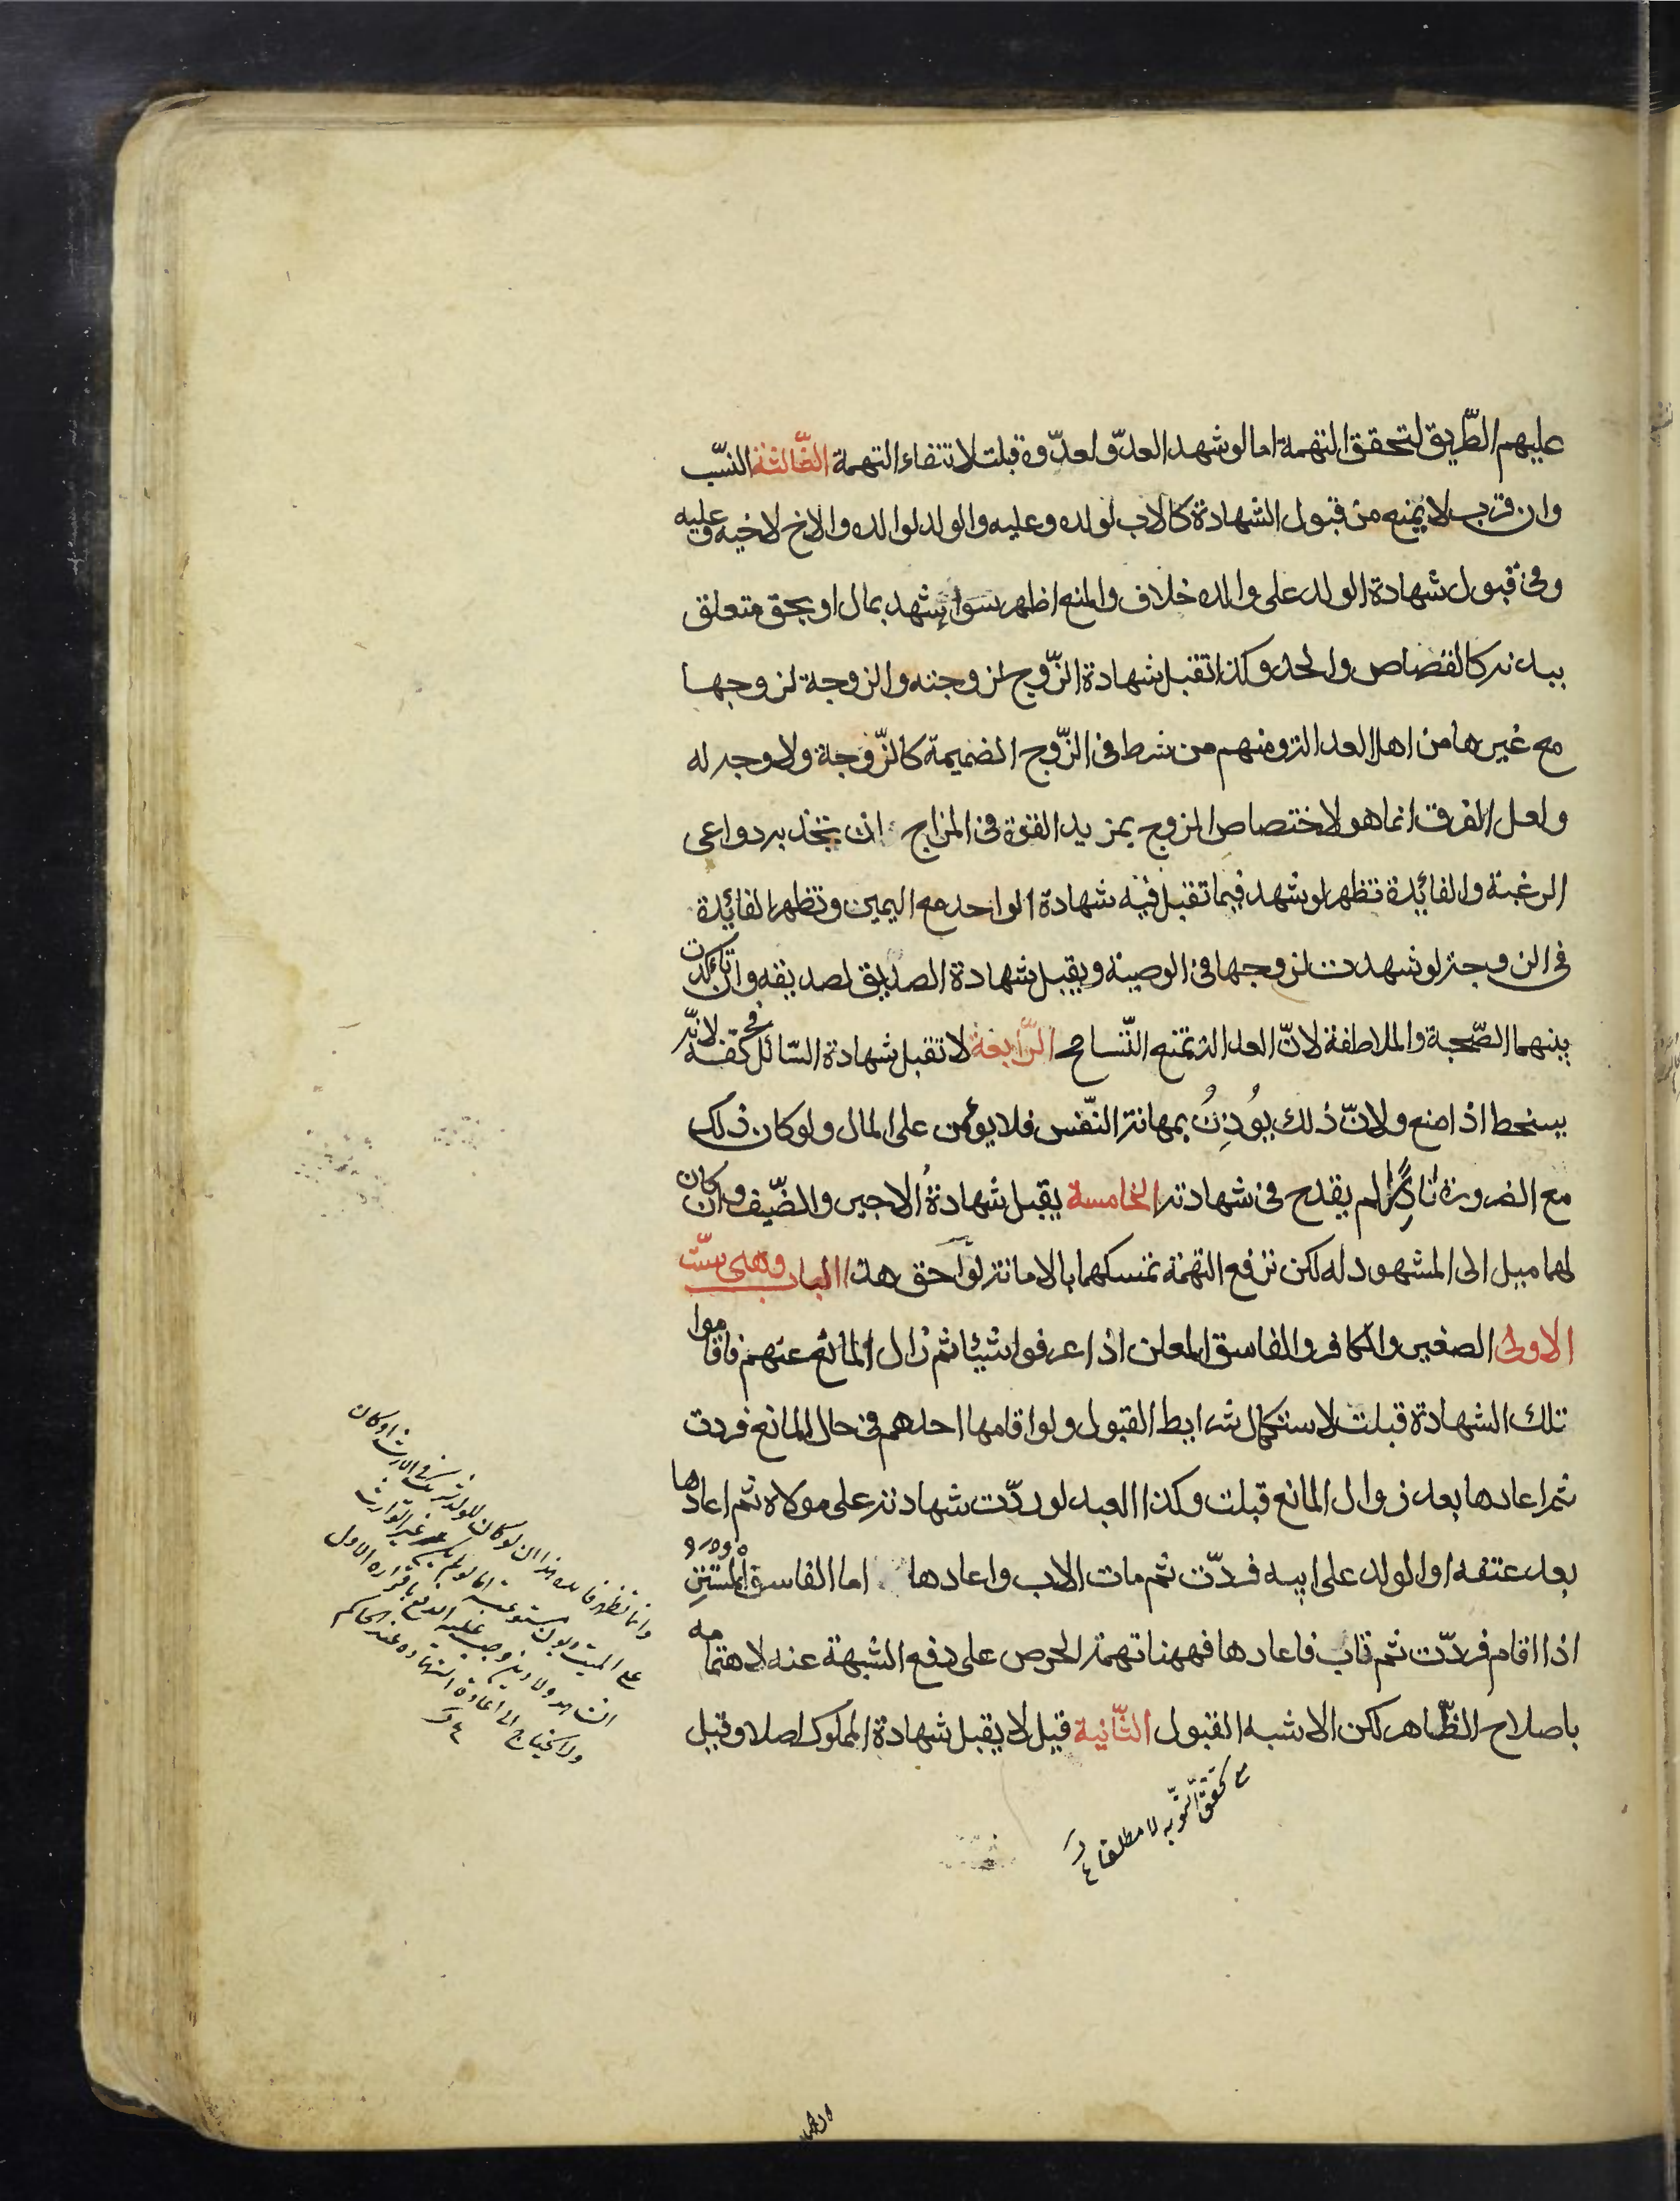 عليهم الطّريق لتحقق التهمة اما لو شهد العدوّ لعدوّه قبلت لانتفاء التهمة الثّالثة النسّب
وان قرب لا يمنع من قبول الشهادة كالاب لولده وعليه والولد لوالده والاخ لاخيه وعليه
وفى قبول شهادة الولد على والده خلاف والمنع اظهر سواء شهد بمال او بحق متعلق
ببدنه كالقصاص والحد وكذا تقبل شهادة الزّوج لزوجته والزوجة لزوجها
مع غيرها من اهل العدالة ومنهم من شرط فى الزّوج الضميمة كالزّوجة ولا وجه له
ولعل الفرق انما هو لاختصاص الزوج بمزيد القوة فى المزاج ان تجذبه دواعى
الرغبة والفائدة تظهر لو شهد فيما تقبل فيه شهادة الواحد مع اليمين وتظهر الفائدة
فى الزوجة لو شهدت لزوجها فى الوصية ويقبل شهادة الصديق لصديقه وان تأكدت
بينهما الصّحبة والملاطفة لانّ العدالة تمنع التّسامح الرّابعة لا تقبل شهادة السّائل بكفّه لانّه
يسخط اذا منع ولانّ ذلك يُوذِنُ بمهانة النّفس فلا يؤمن على المال ولو كان ذلك
مع الضرورة نادِرًا لم يقدح فى شهادته الخامسة يقبل شهادةُ الاجير والضّيف وان كان
لهما ميل الى المشهود له لكن ترفع التهمة تمسكهما بالامانة لواحق هذا الباب وهى ستّ
الاولى الصغير والكافر والفاسق المعلن اذا عرفوا شيئا ثم زال المانع عنهم فاقاموا
تلك الشهادة قبلت لاستكمال شرايط القبول ولو اقامها احدهم فى حال المانع فردت
ثم اعادها بعد زوال المانع قبلت وكذا العبد لو ردّت شهادته على مولاه ثم اعادها
بعد عتقه او الولد على ابيه فردّت ثم مات الاب واعادها اما الفاسق المستتر
اذا اقام فردّت ثم تاب فاعادها فههنا تهمة الحرص على دفع الشبهة عنه لاهتمامه
باصلاح الظّاهر لكن الاشبه القبول الثّانية قيل لا يقبل شهادة المملوك اصلا وقيل
مع تحقق التّوبه لا مطلقا
وانما تظهر فايده هذا ان لو كان للولد شريك فى الارث او كان
على الميت ديون مستوعبة اما لو لم يكن غير الوارث
الشاهد ولا دين وجب عليه الدفع باقراره الاول
ولا يحتاج الى اعادة الشهاده عند الحاكم